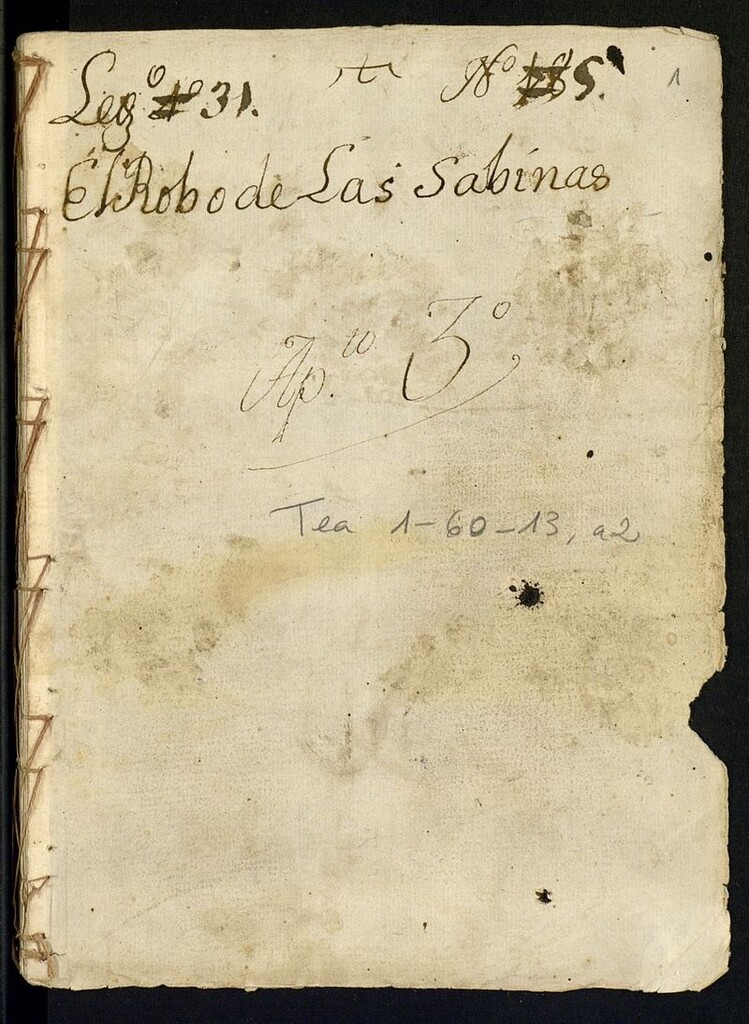 Leg.º 31. Nº 5. 1
El Robo de Las Sabinas
Ap.to 3º
Tea 1-60-13, a2